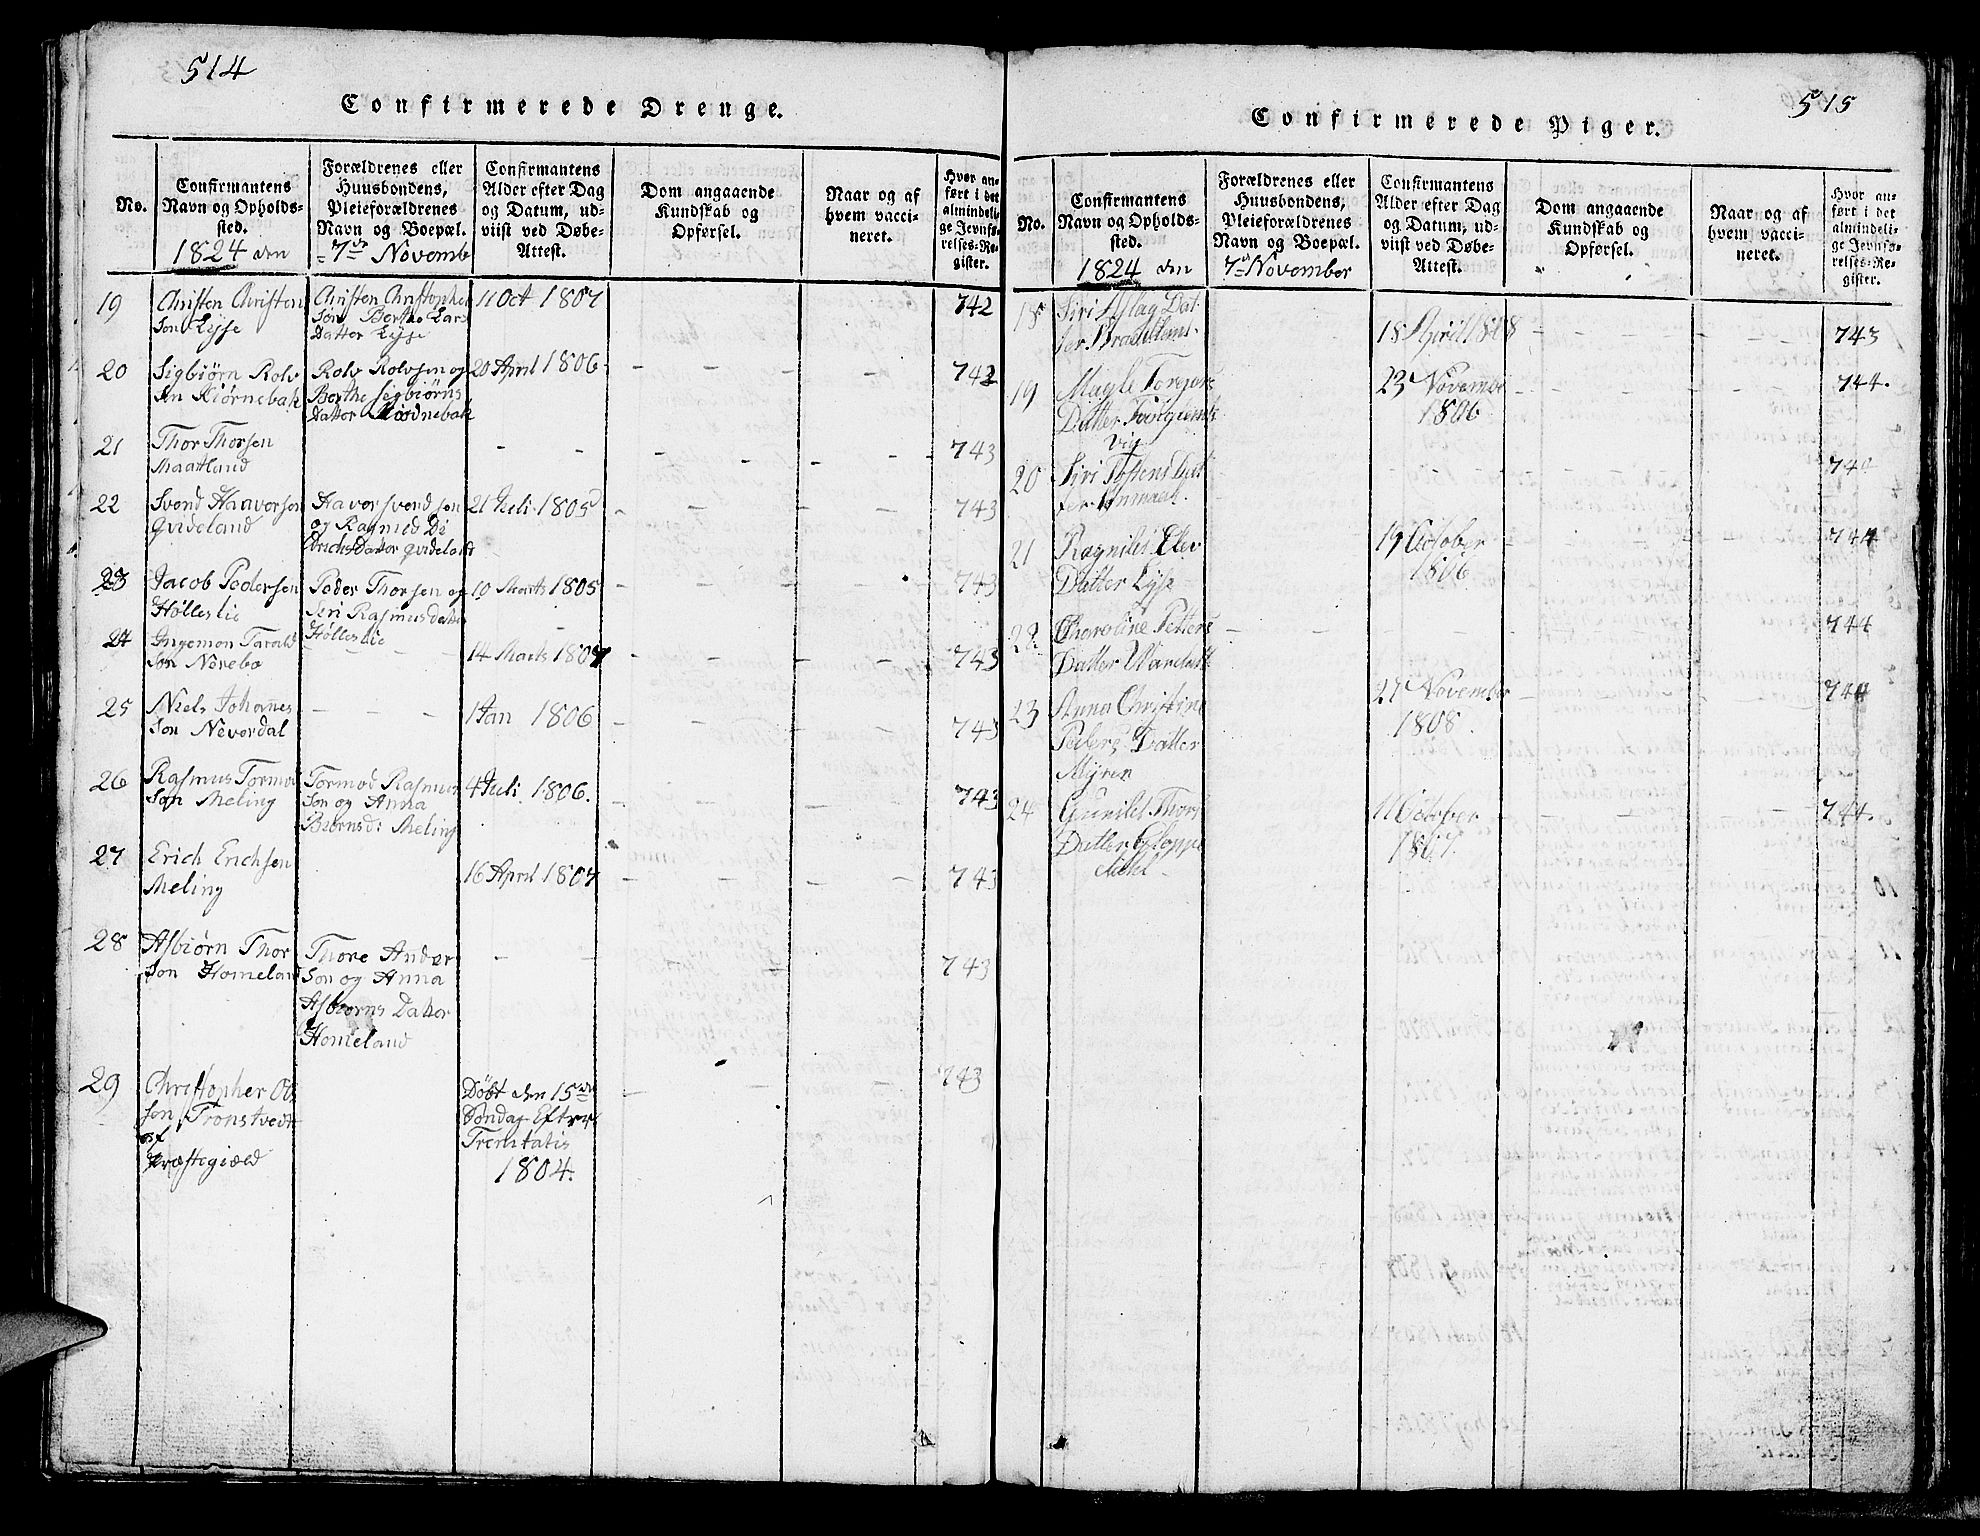 514
Confirmerede Drenge.
No.
Confirmantens
Navn og Opholds-
sted.
1824 den
Forældrenes eller
Huusbondens,
Pleieforældrenes
Navn og Boepæl.
7de Novemb
Confirmantens
Alder efter Dag
og Datum, ud-
viist ved Døbe-
Attest.
Dom angaaende
Kundskab og
Opførsel.
Naar og af
hvem vacci-
neret.
Hvor an-
ført i det
almindeli-
ge Jevnfø-
relses-Re-
gister.
19
Christen Christen
Søn Lyse
Christen Christopher
Søn Berthe Lars
Datter Lyse
11 Oct 1807
742
20
Sigbiørn Rolv
Sen Kiørnebak
Rolv Rolvsen og
Berthe Sigbiørns
Datter Kiødnebak
20 April 1806
742
21
Thor Thorsen
Maatland
743
22
Svend Haavorsen
Qvideland
Havor Svendsen
og Ragnild Di
drichs Datter Qvideland
21 Juli 1805
743
23
Jacob Pedersen
Hølleslie
Peder Thorsen og
Seri Rasmusdatter
Hølleslie
10 Marts 1805
743
24
Ingemon Tarald
Søn Nørebø
14 Marts 1807
743
25
Niels Johannes
Søn Nevordal
1 Jan 1806
743
26
Rasmus Tormod
Søn Meling
Tormod Rasmus
Søn og Anna
Biørnsd: Meling
4 Juli 1806.
743
27
Erich Erichsen
Meling
16 April 1807
743
28
Asbiørn Thor
Søn Homeland
Thore Ander
Søn og Anna
Asbiørns Datter
Homeland
743
29
Christopher Ol
Søn Tronstvedt
af
Præstegiæld
Døbt den 15de
Søndag Efter
Trenitatis
1804.
743
515
Confirmerede Piger.
No.
Confirmantens
Navn og Opholds-
sted.
1824 den
Forældrenes eller
Huusbondens,
Pleieforældrenes
Navn og Boepæl.
7de November
Confirmantens
Alder efter Dag
og Datum, ud-
viist ved Døbe-
Attest.
Dom angaaende
Kundskab og
Opførsel.
Naar og af
hvem vacci-
neret.
Hvor an-
ført i det
almindeli-
ge Jevnfø-
relses-Re-
gister.
18
Siri Aslag Dat
ter
18 April 1808
743
19
Magle Torgers
Datter
vig
23 Novemb
1806
744.
20
Siri Tostens Dat
ter
744
21
Ragnild Elev
Datter Lyse
19 October
1806
744
22
Charoline Petters
Datter
744
23
Anna Christine
Peders Datter
Myren
27 November
1808.
744
24
Gunild Thors
Datter Gloppe
dahl
11 October
1807.
744.